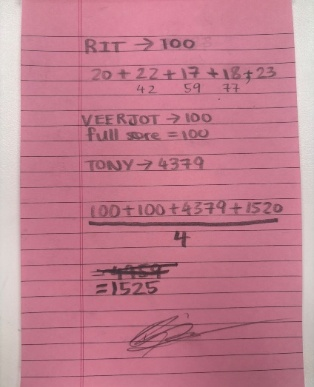 RIT → 100
20 + 22 + 17 + 18 + 23
42 59 77
VEERJOT → 100
full score = 100
TONY → 4379
100+100+4379+1520
4
=1525